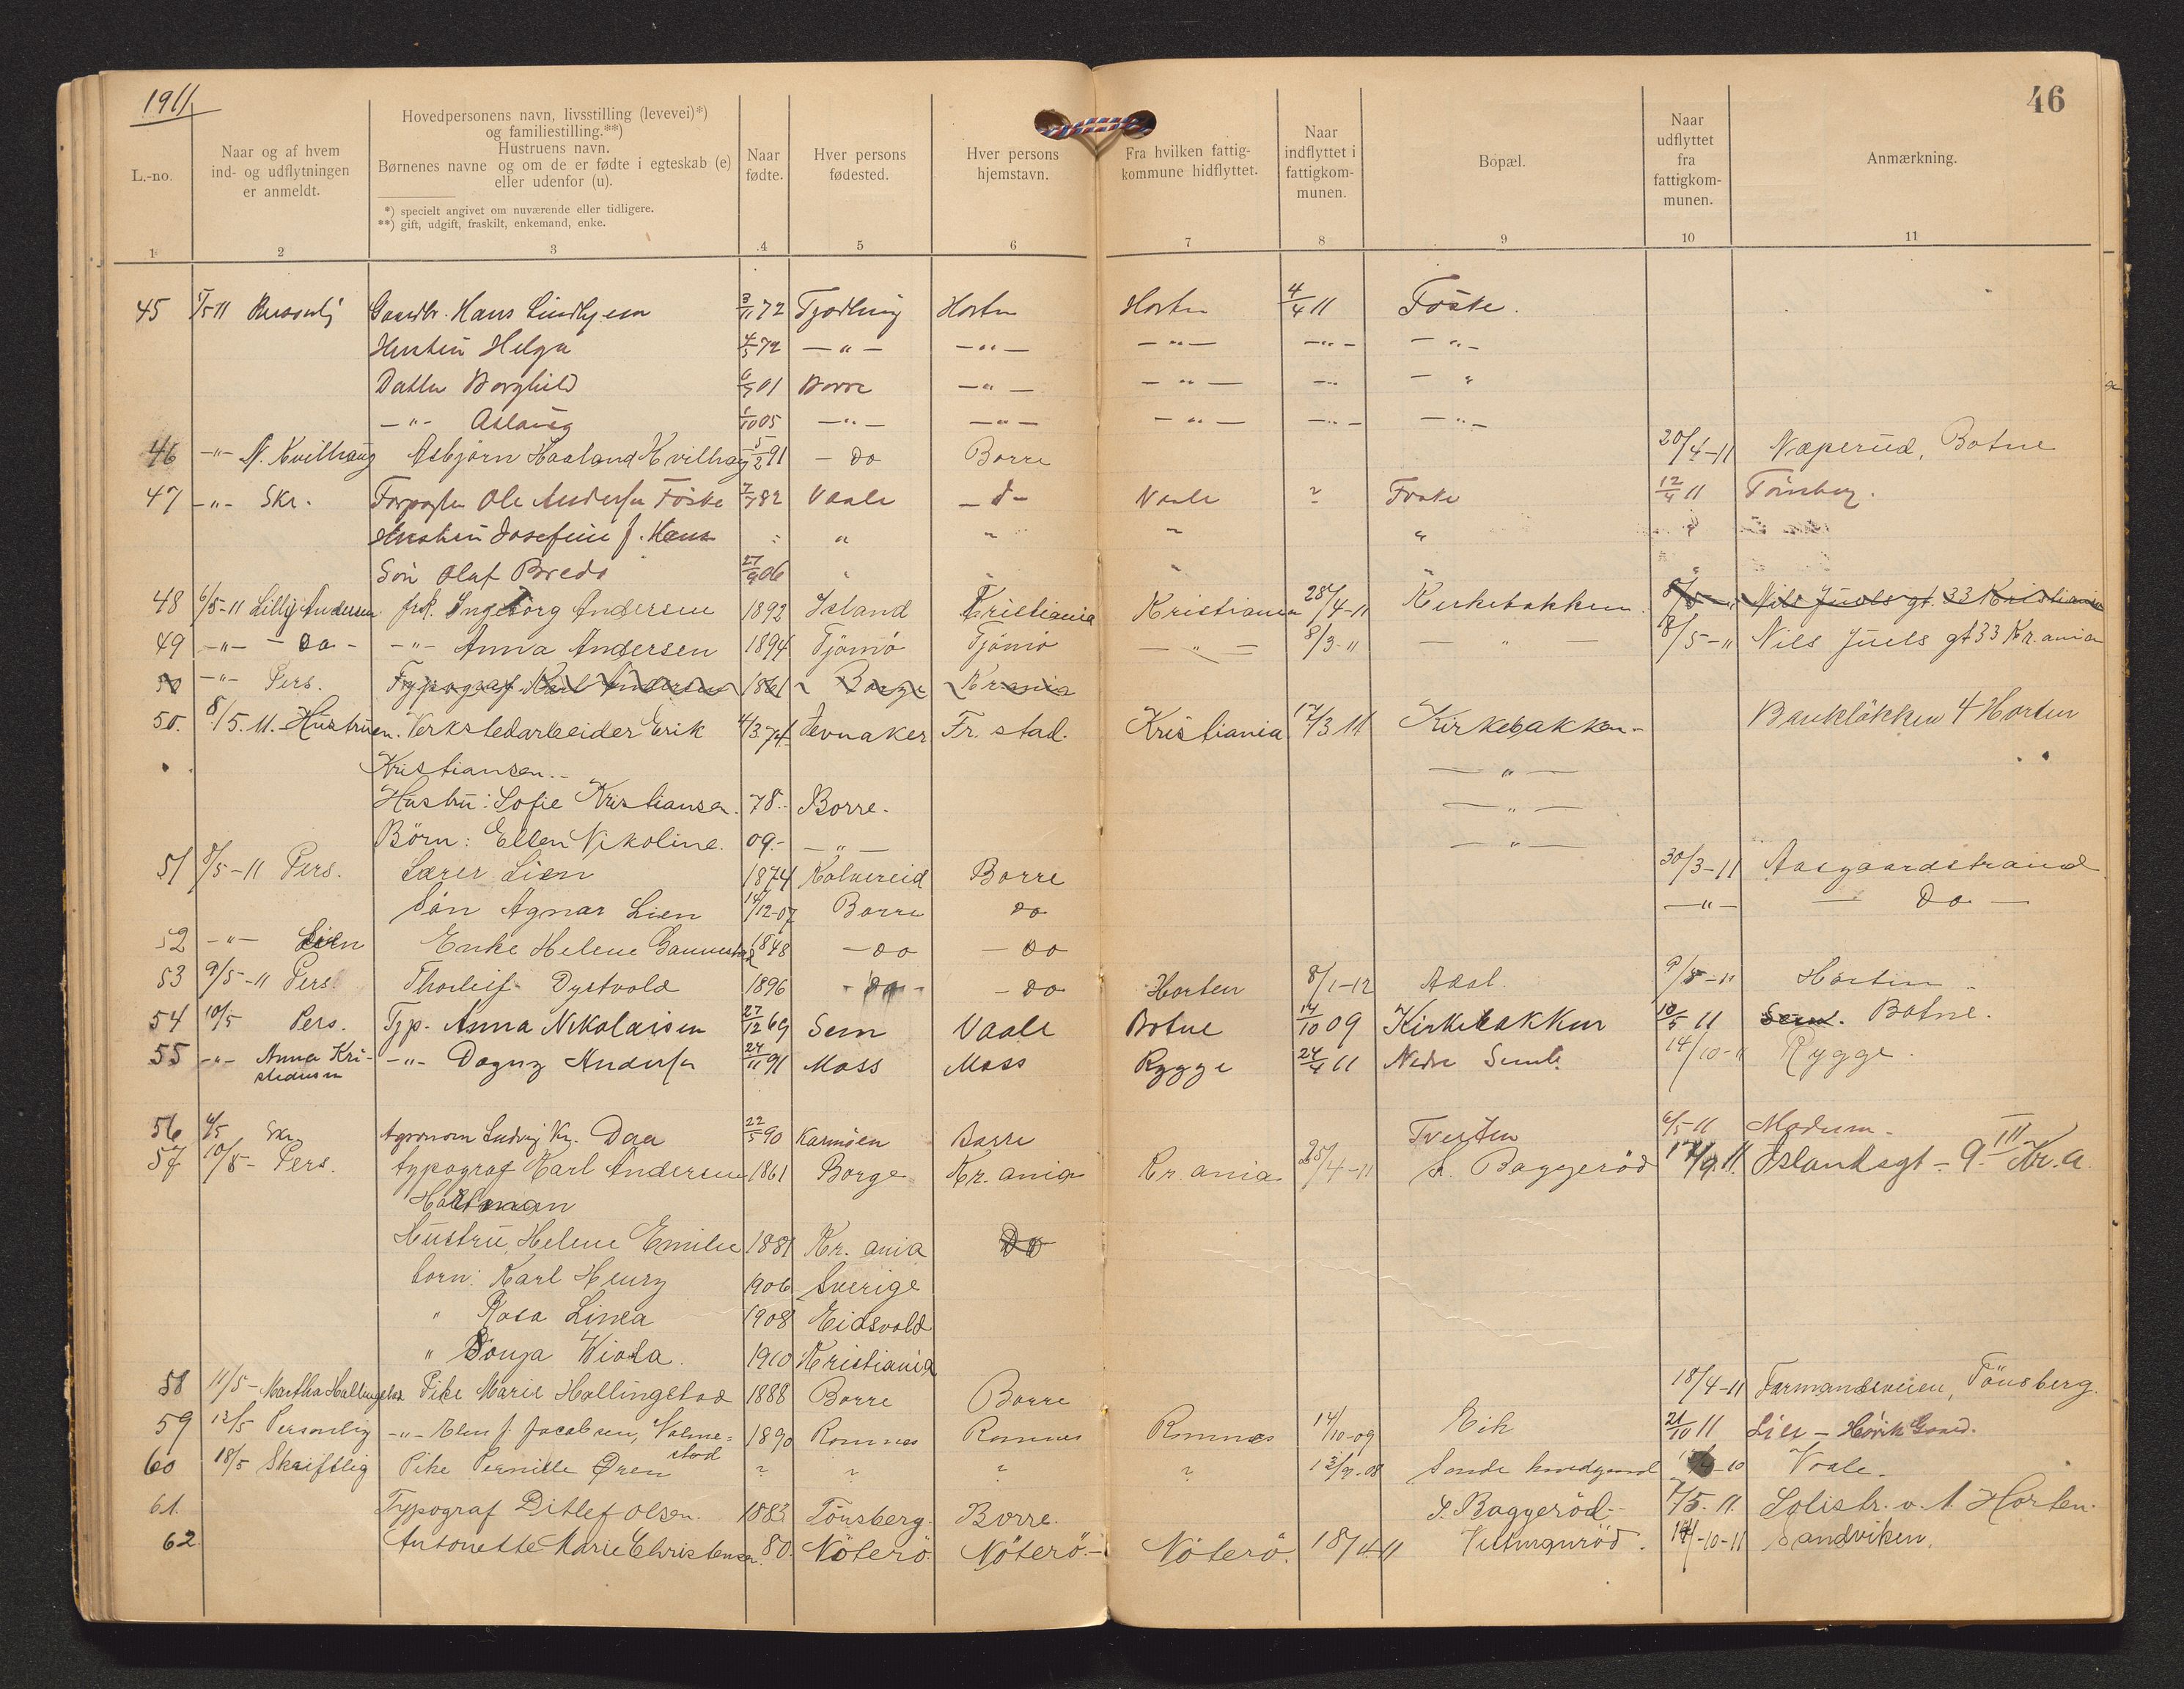 1911
46
L.-no.
Naar og af hvem
ind- og udflytningen
er anmeldt.
Hovedpersonens navn, livsstilling (levevei)*)
og familiestilling.**)
Hustruens navn.
Børnenes navne og om de er fødte i egteskab (e)
eller udenfor (u).
*) specielt angivet om nuværende eller tidligere.
**) gift, udgift, fraskilt, enkemand, enke.
Naar
fødte.
Hver persons
fødested.
Hver persons
hjemstavn.
Fra hvilken fattig-
kommune hidflyttet.
Naar
indflyttet i
fattigkom-
munen.
Bopæl.
Naar
udflyttet
fra
fattigkom-
munen.
Anmærkning.
1 2 3 4 5 6 7 8 9 10 11
45 5/5 11 Personlig Gaardbr. Hans Lindhjem 3/11 72 Tjødling Horten Horten 4/4 11 Föske.
Hustru Helga 4/5 72 — " — — " — — " — — " — — " —
Datter Borghild 01 Borre — " — — " — — " — — "
— " — Aslaug 1/10 05 — " — — " — — " — — " — — " —
46 — " — N. Kvilhaug Asbjørn Haaland Kvilhaug 5/2 91 — do Borre 20/4-11 Næperud, Botne
47 — " — Skr. Forpagter Ole Andersen Föske 7/7 82 Vaale — d — Vaale ? Föske 12/4 11 Tönsberg.
Hustru Josefine f. Hans " " " "
Sön Olaf Bredo 27/9 06 " " " "
48 6/5-11 Lilly Andersen frk. Ingeborg Andersen 1892 Island Kristiania Kristiania 28/4-11 Kirkebakken 8/5-" Nils Juels gt. 33 Kristiania
49 — " — — Do — — " — Anna Andersen 1894 Tjömö Tjömö — " — 8/3-" — " — 8/5-" Nils Juels gt 33 Kr.ania
50 — " — Pers. Typograf Karl Andersen 1861 Borge Kr.ania
50. 8/5.11. Hustruen. Verkstedarbeider Erik 4/3 74 Jevnaker Fr. stad. Kristiania 17/3 11 Kirkebakken — Bankløkken 4 Horten
Kristiansen. — " —
Hustru: Sofie Kristiansen. 78. Borre. — " —
Börn: Ellen Nikoline. 09. — " — — " —
51 8/5-11 Pers. Lærer Lien 1874 Kolvereid Borre 30/3-11 Aasgaardstrand
Sön Agnar Lien 14/12-07 Borre do — " — — Do —
52 — " — Lien Enke Helene Gannestad 1848 — do — do
53 9/5-11 Pers. Thorleif Dystvold 1896 — do — — do Horten 8/1-12 Adal. 9/5-11 Horten
54 10/5 Pers. Typ. Anna Nikolaisen 27/12 69 Sem Vaale Botne 14/10 09 Kirkebakken 10/5 11 Sem. Botne.
55 — " — Anna Kri-
stiansen — " — Dagny Andersen 24/11 91 Moss Moss Rygge 24/4 11 Nedre Semb. 14/10-11 Rygge.
56 6/5 Skr. Agronom Ludvig Kr. Daa 22/5 90 Karmöen Borre Tveiten 6/5-11 Modum.
57 10/5- Pers. typograf Karl Andersen 1861 Borge Kr. ania Kr. ania 25/4-11 S. Baggeröd 17/9.11. Islandsgt - 9. III Kr.a.
Hallman
Hustru Helene Emilie 1881 Kr. ania Do
börn: Karl Henry 1906 Sverige
" Rosa Linea 1908 Eidsvold
" Sonja Viola. 1910 Kristiania
58 11/5- Martha Hallingstad Pike Marie Hallingstad 1888 Borre Borre 18/4-11 Farmandsveien, Tönsberg.
59 12/5 Personlig — " — Elen f. Jacobsen, Valme=
stad 1890 Romnes Romnes Romnes 14/10-09 Eik 21/10 11 Lier — Hørik Gaard.
60 18/5 Skriftlig Pike Pernille Øren ? ? ? ? 13/9-08 Sande -10 Vaale.
61. Typograf Ditlef Olsen. 1883 Tönsberg. Borre. S. Baggeröd. 7/5.11. Solistr. v. 1. Horten.
62 Antonette Marie Christensen. 80. Nöterö. Nöterö. — Nöterö. 18/4-11 14-10-11 Sandviken.